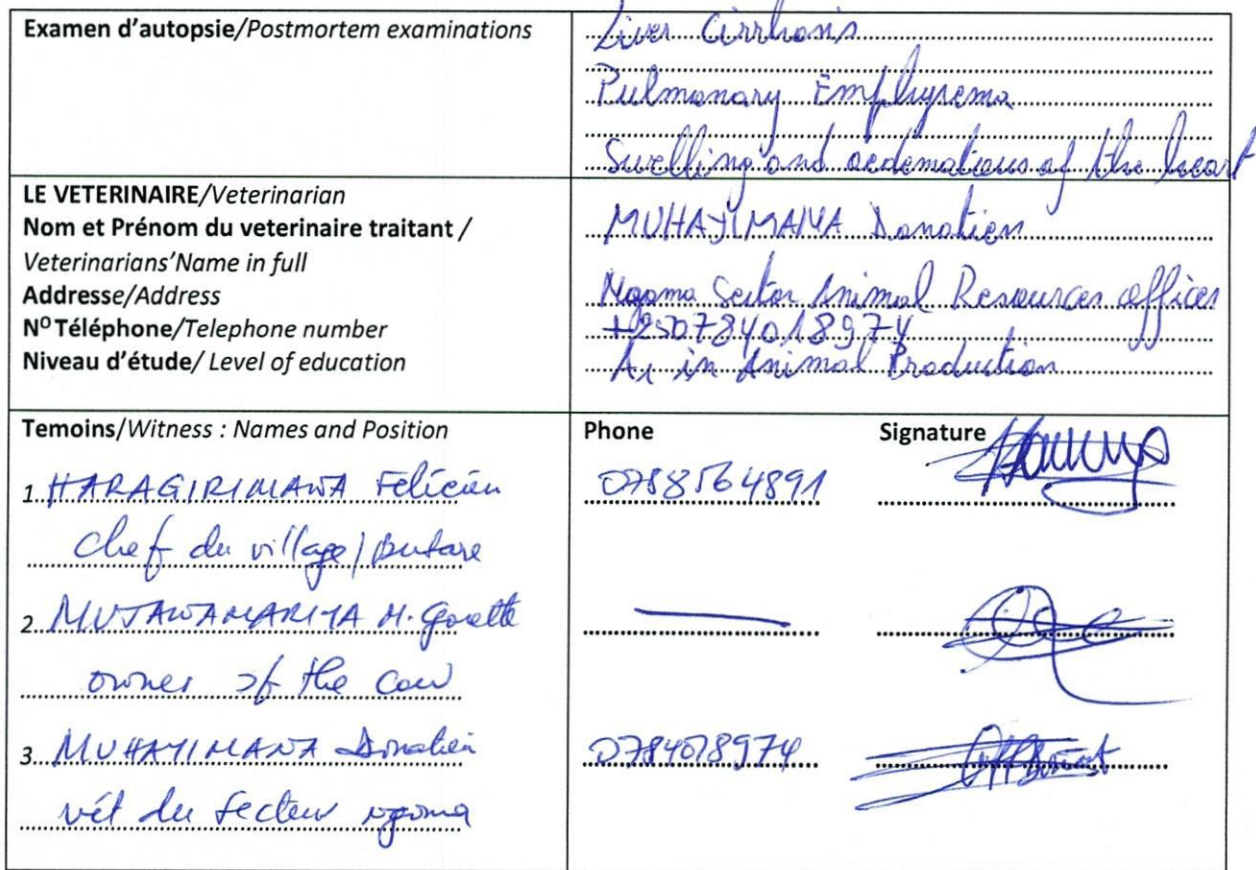 Examen d'autopsie/Postmortem examinations
Liver Cirrhosis
Pulmonary Emphysema
Swelling and oedematious of the heart
LE VETERINAIRE/Veterinarian
Nom et Prénom du veterinaire traitant /
Veterinarians'Name in full
Addresse/Address
N° Téléphone/Telephone number
Niveau d'étude/ Level of education
MUHAYIMANA Donatien
Ngoma Sector Animal Resources officer
+250784018974
A1 in Animal Production
Temoins/Witness : Names and Position
Phone
Signature
1. HARAGIRIMANA Felicien 0788564891
Chef du village/Butare
2. MUJAWAMARIYA M. Gorette
owner of the cow
3. MUHAYIMANA Donatien 0784018974
vét du secteur ngoma